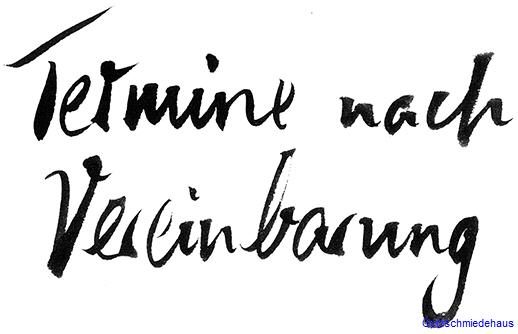 Termine nach
Vereinbarung
Goldschmiedehaus